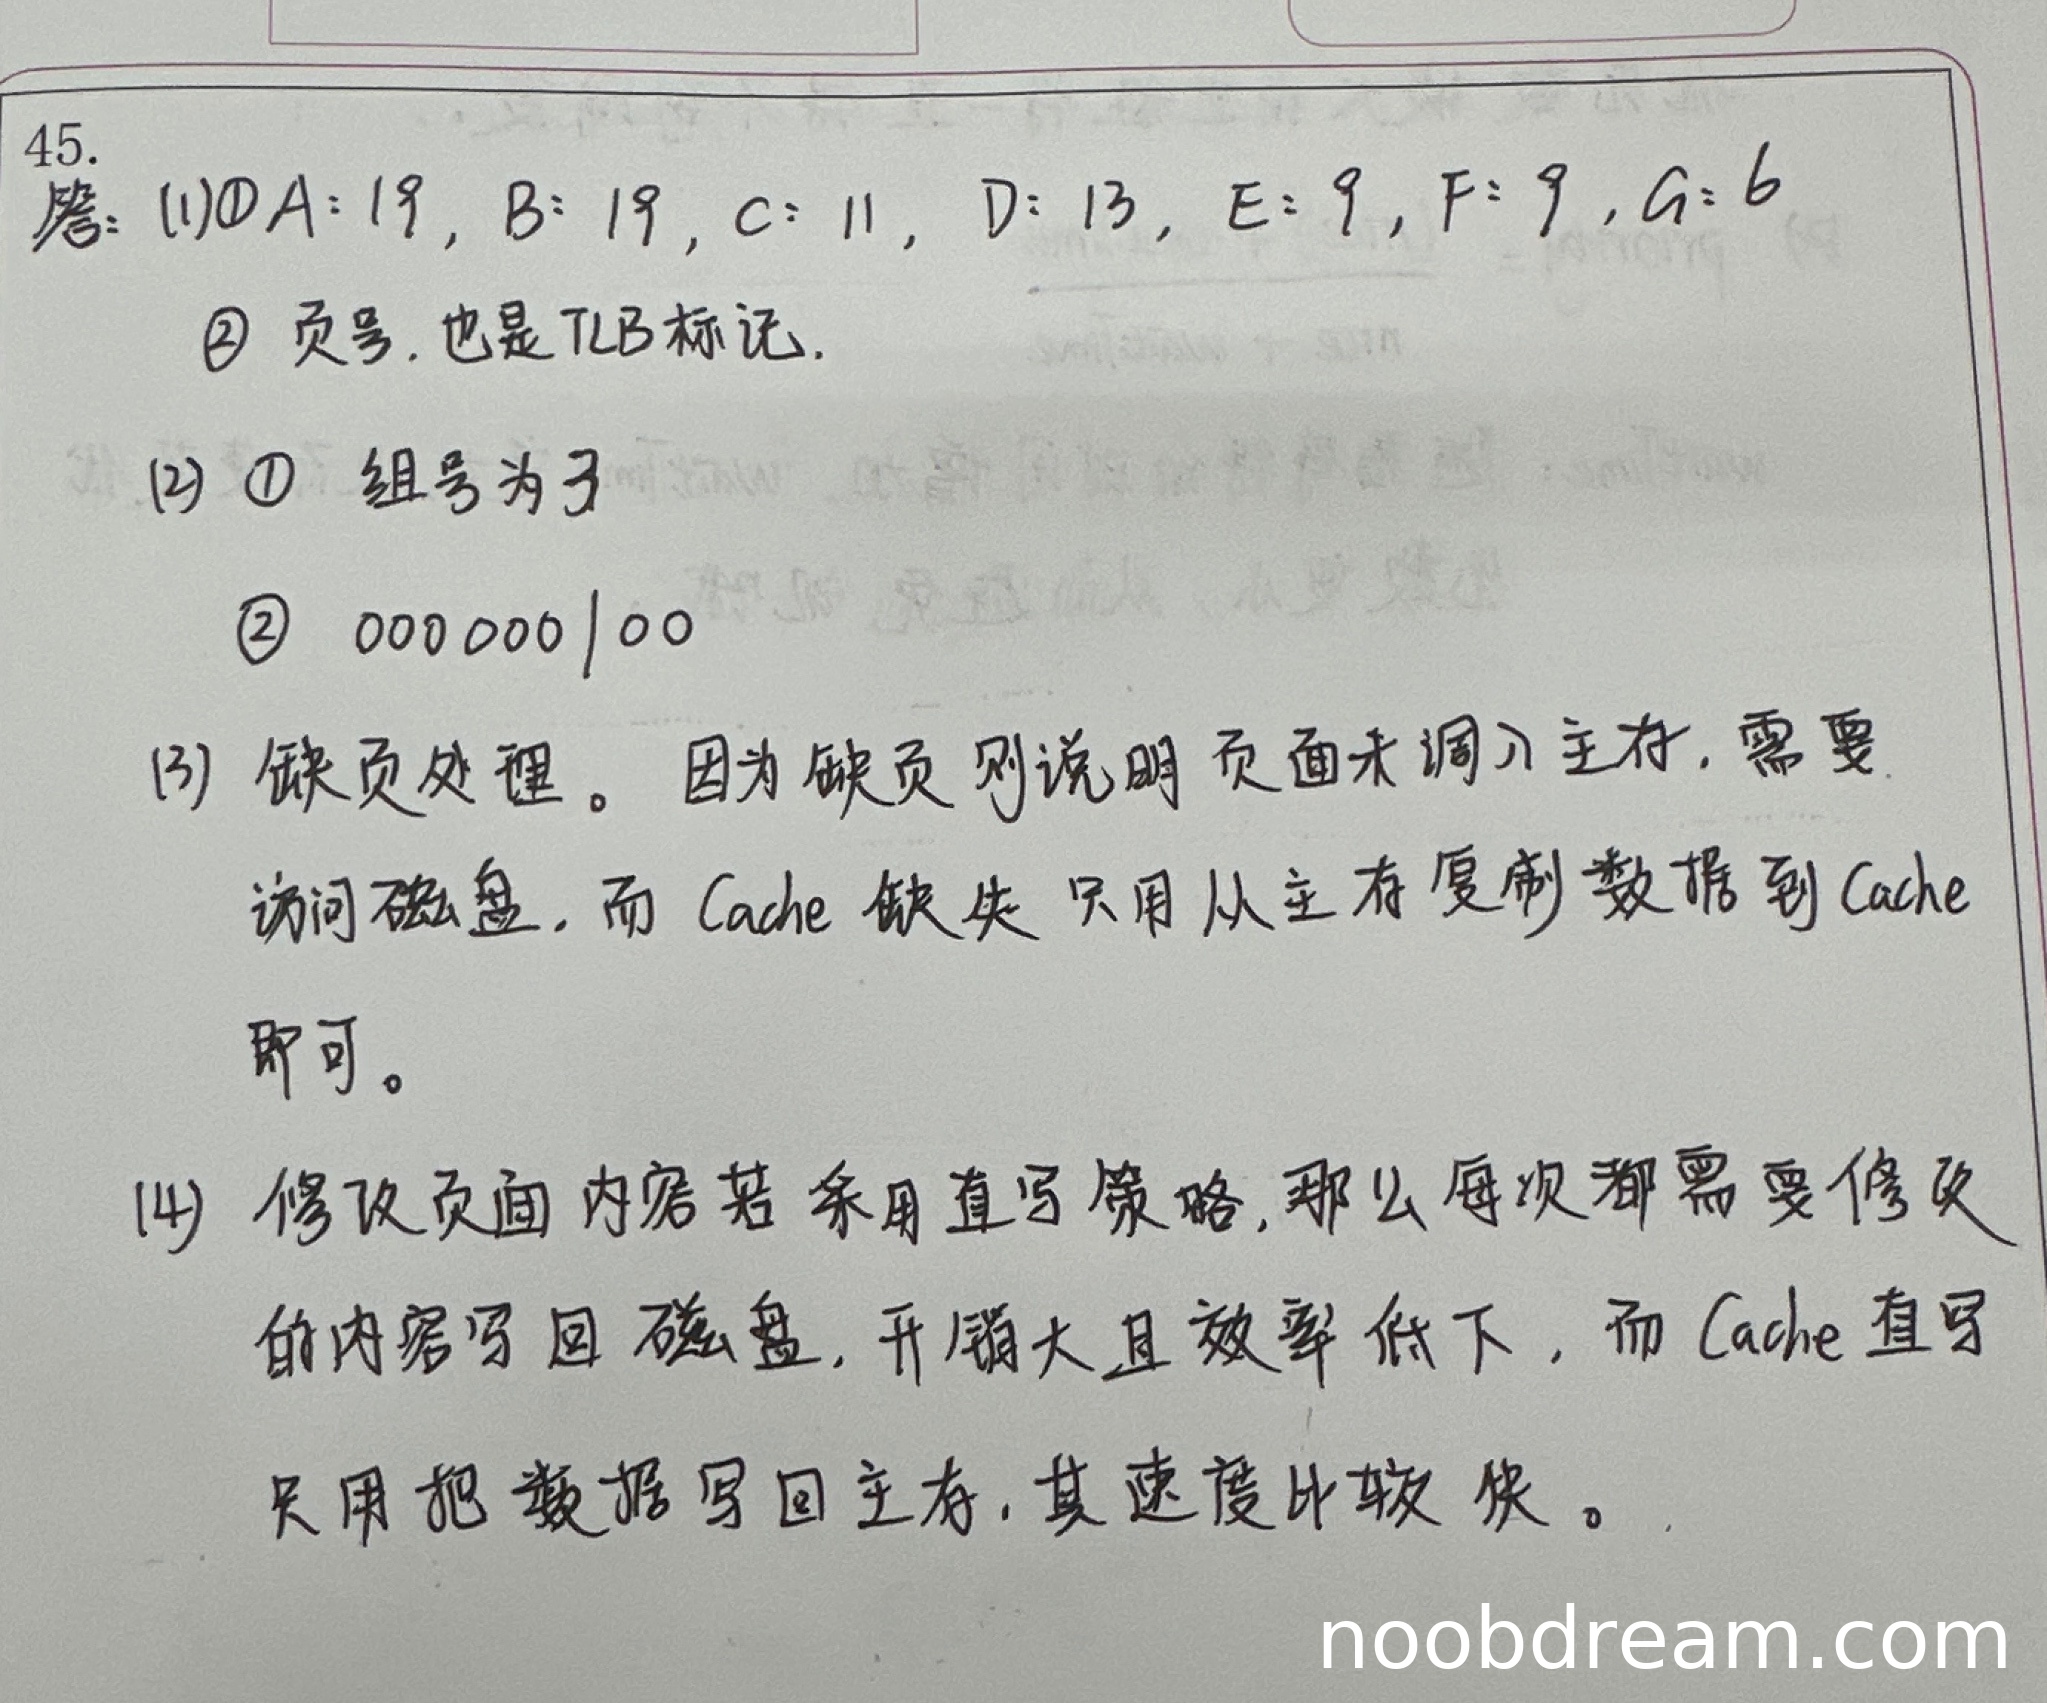 45.
答: (1)① A: 19, B: 19, C: 11, D: 13, E: 9, F: 9, G: 6
② 页号.也是TLB标记.
(2) ① 组号为3
② 000000100
(3) 缺页处理。因为缺页则说明页面未调入主存.需要
访问磁盘.而Cache缺失只用从主存复制数据到Cache
即可。
(4) 修改页面内容若采用直写策略,那么每次都需要修改
的内容写回磁盘,开销大且效率低下,而Cache直写
只用把数据写回主存,其速度比较快。
noobdream.com